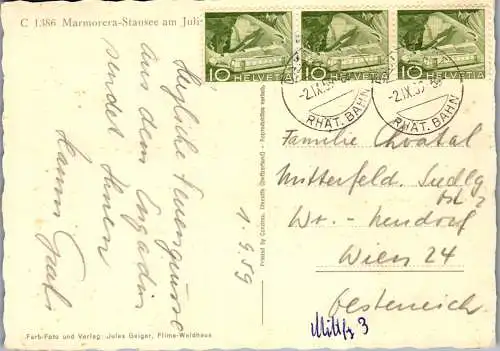 C 1386 Marmorera-Stausee am Juli
Herzliche Feriengrüsse
aus dem Engadin
sendet Ihnen
1.9.59
Printed by Conzett, (Switzerland) - Reproduction verboten.
Farb-Foto und Verlag: Jules Geiger, Flims-Waldhaus
10 HELVETIA
10 HELVETIA
10 HELVETIA
-2.IX.59
RHÄT. BAHN
-2.IX.59
RHÄT. BAHN
Familie
Mitterfeld. Siedlg
Wr.-Neudorf
Wien 24
Oesterreich